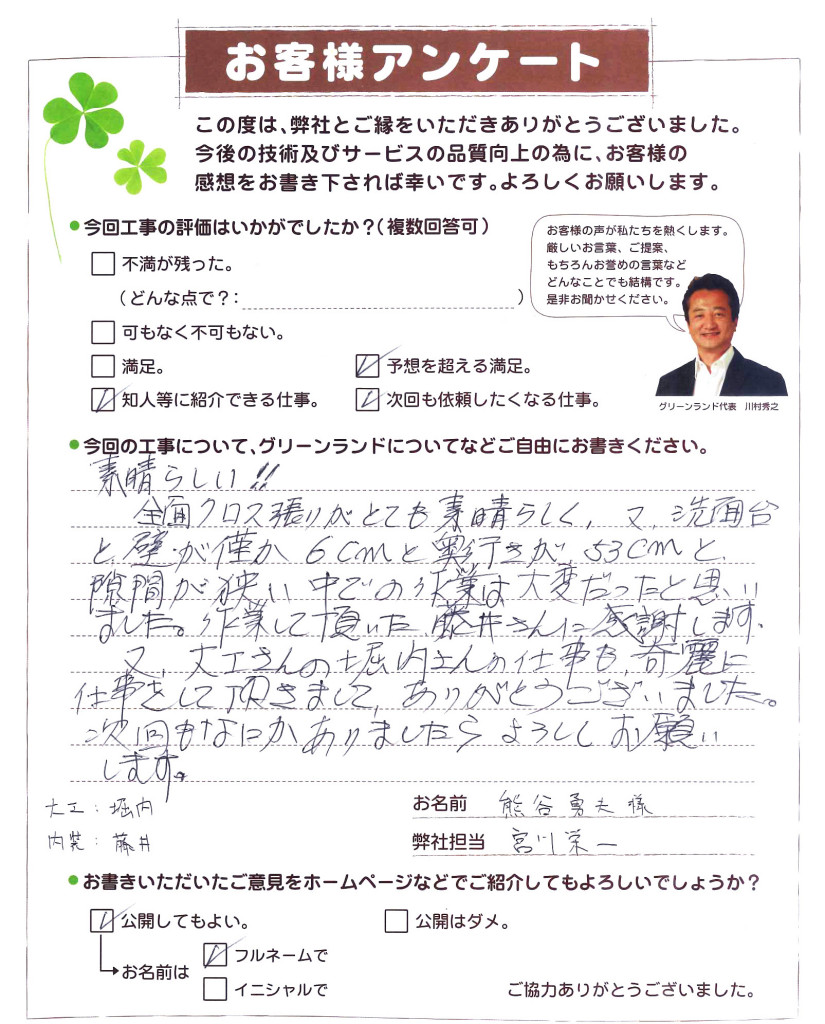 お客様アンケート
この度は、弊社とご縁をいただきありがとうございました。
今後の技術及びサービスの品質向上の為に、お客様の
感想をお書き下されば幸いです。よろしくお願いします。
今回工事の評価はいかがでしたか？(複数回答可)
不満が残った。
(どんな点で？: )
可もなく不可もない。
満足。
予想を超える満足。
知人等に紹介できる仕事。
次回も依頼したくなる仕事。
お客様の声が私たちを熱くします。
厳しいお言葉、ご提案、
もちろんお誉めの言葉など
どんなことでも結構です。
是非お聞かせください。
グリーンランド代表 川村秀之
今回の工事について、グリーンランドについてなどご自由にお書きください。
素晴らしい!!
全面クロス張りがとても素晴らしく、又、洗面台
と壁が僅か6cmと奥行きが、53cmと、
隙間が狭い中での作業は大変だったと思い
ました。作業して頂いた藤井さんに感謝します。
又、大工さんの堀内さんの仕事も、奇麗に
仕事をして頂きまして、ありがとうございました。
次回もなにかありましたらよろししお願い
します。
大工：堀内
内装：藤井
お名前 熊谷勇夫様
弊社担当 宮川栄一
お書きいただいたご意見をホームページなどでご紹介してもよろしいでしょうか？
公開してもよい。
公開はダメ。
お名前は
フルネームで
イニシャルで
ご協力ありがとうございました。